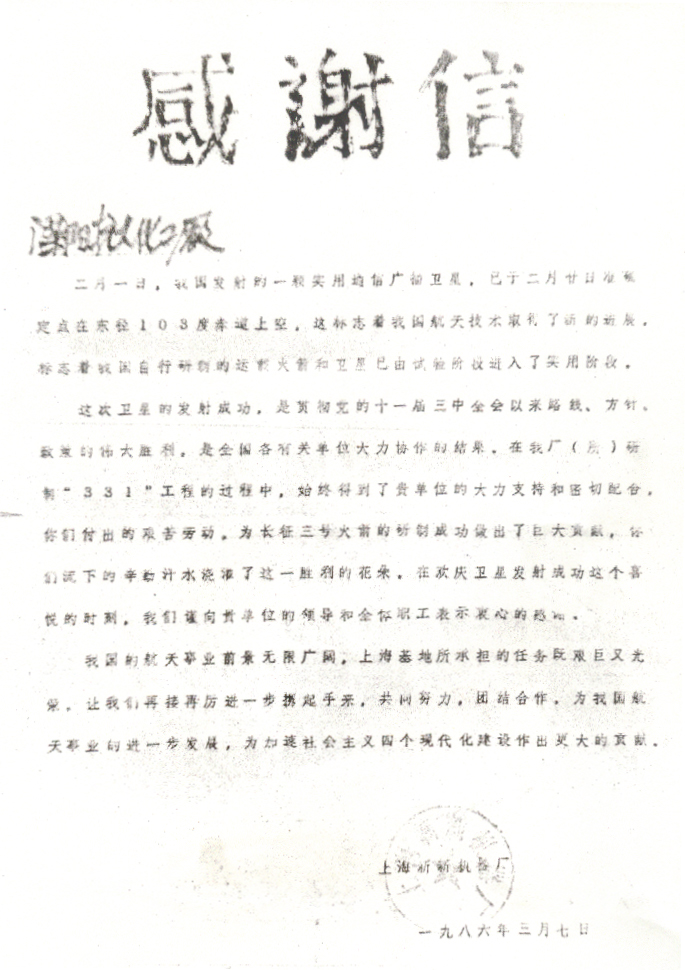 感謝信
二月一日，我国发射的一颗实用通信广播卫星，已于二月廿日准确
定点在东径１０３度赤道上空，这标志着我国航天技术取得了新的进展，
标志着我国自行研制的运载火箭和卫星已由试验阶段进入了实用阶段。
这次卫星的发射成功，是贯彻党的十一届三中全会以来路线、方针、
政策的伟大胜利，是全国各有关单位大力协作的结果。在我厂（所）研
制“３３１”工程的过程中，始终得到了贵单位的大力支持和密切配合，
你们付出的艰苦劳动，为长征三号火箭的研制成功做出了巨大贡献，你
们流下的辛勤汁水浇灌了这一胜利的花朵。在欢庆卫星发射成功这个喜
悦的时刻，我们谨向贵单位的领导和全体职工表示衷心的感谢。
我国的航天事业前景无限广阔，上海基地所承担的任务既艰巨又光
荣。让我们再接再厉进一步携起手来，共同努力，团结合作，为我国航
天事业的进一步发展，为加速社会主义四个现代化建设作出更大的贡献。
上海新新机器厂
一九八六年三月七日